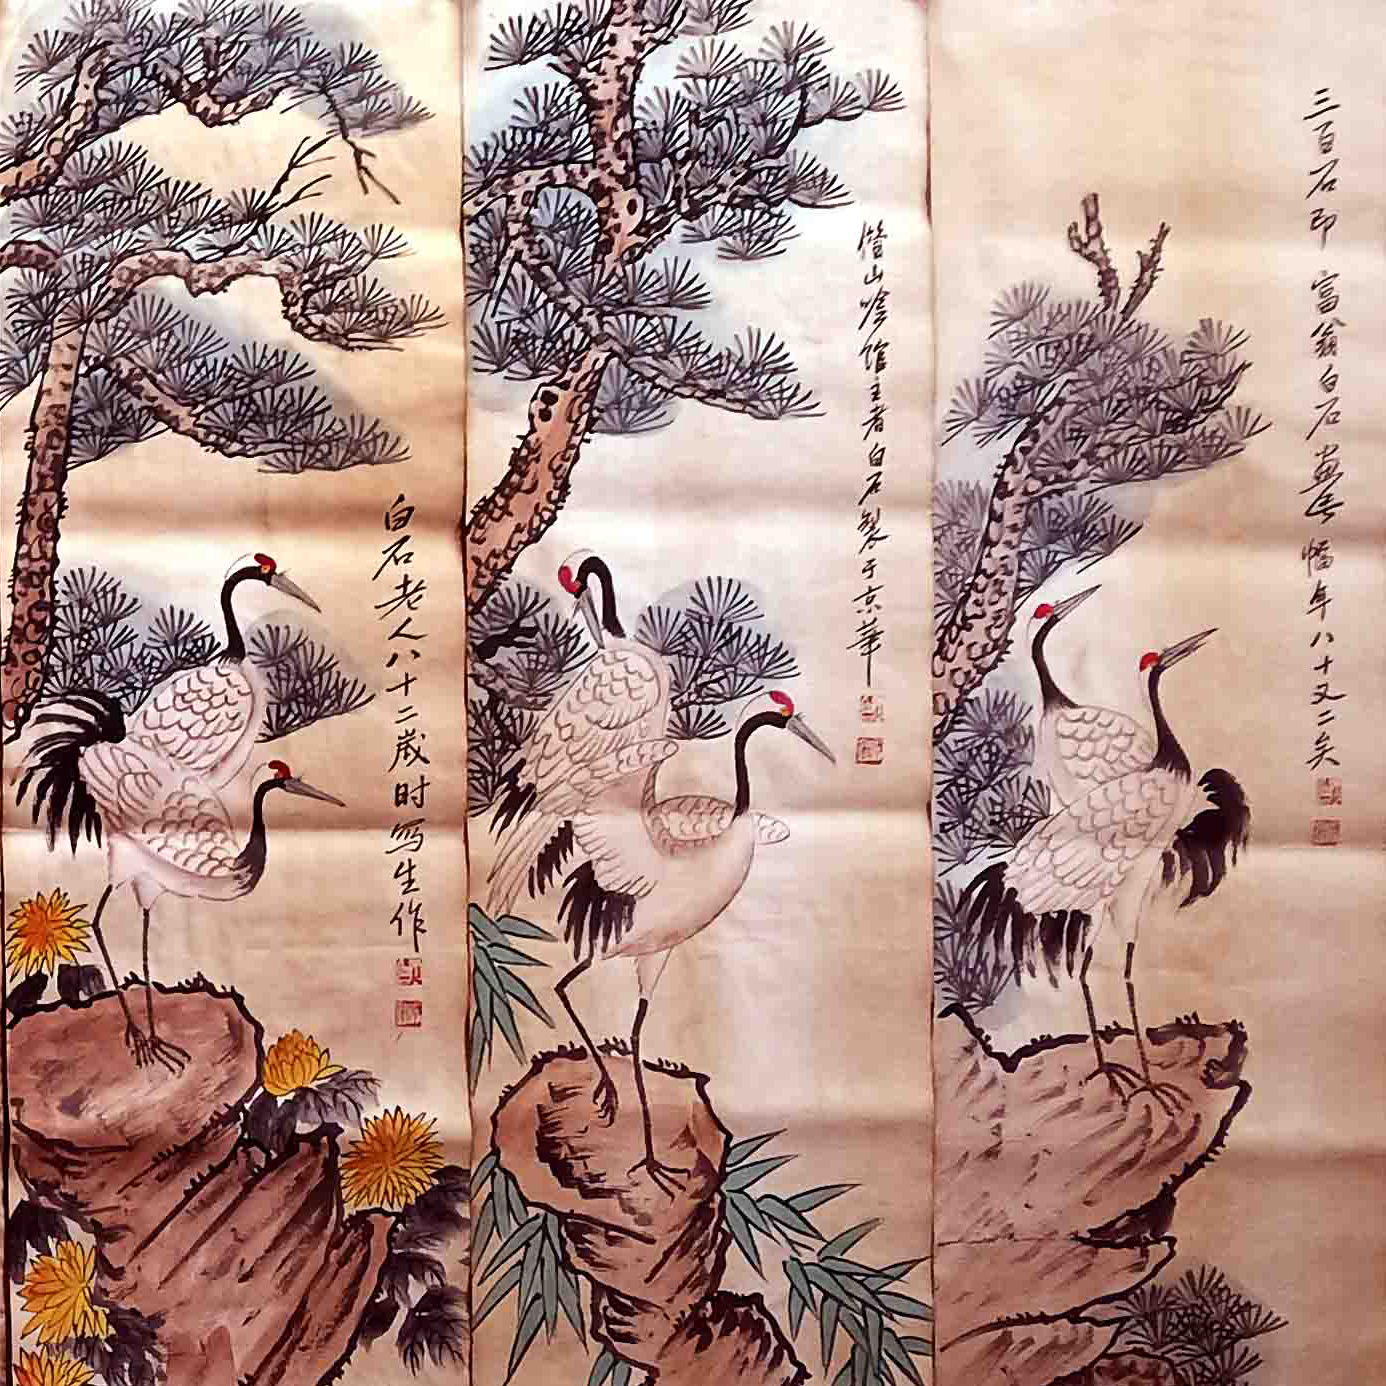 三百石印富翁白石画此幅年八十又二矣
借山吟馆主者白石製于京華
白石老人八十二歲时写生作